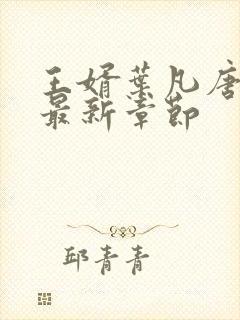 王婿叶凡唐
最新章节
邱青青